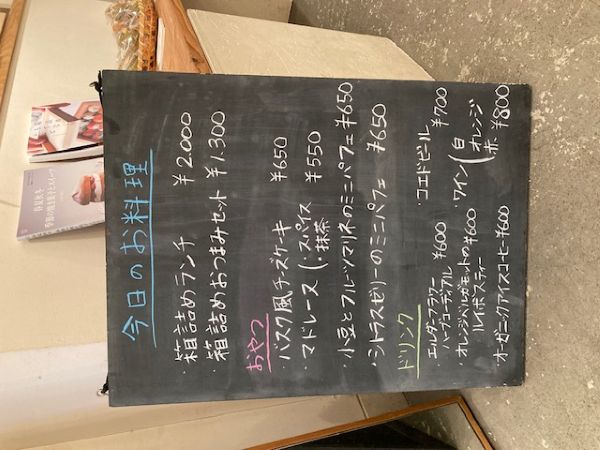 今日のお料理
箱詰めランチ ¥2000
・箱詰めおつまみセット ¥1.300
おやつ
・バスク風チーズケーキ ¥650
・マドレーヌ (・スパイス ¥550
・抹茶
・小豆とフルーツマリネのミニパフェ ¥650
・シトラスゼリーのミニパフェ ¥650
ドリンク
・エルダーフラワー
ハーブコーディアル ¥600
・オレンジベルガモットの ¥600
ルイボスティー
・オーガニックアイスコーヒー ¥600
コエドビール ¥700
・ワイン (白
オレンジ
赤 ¥800